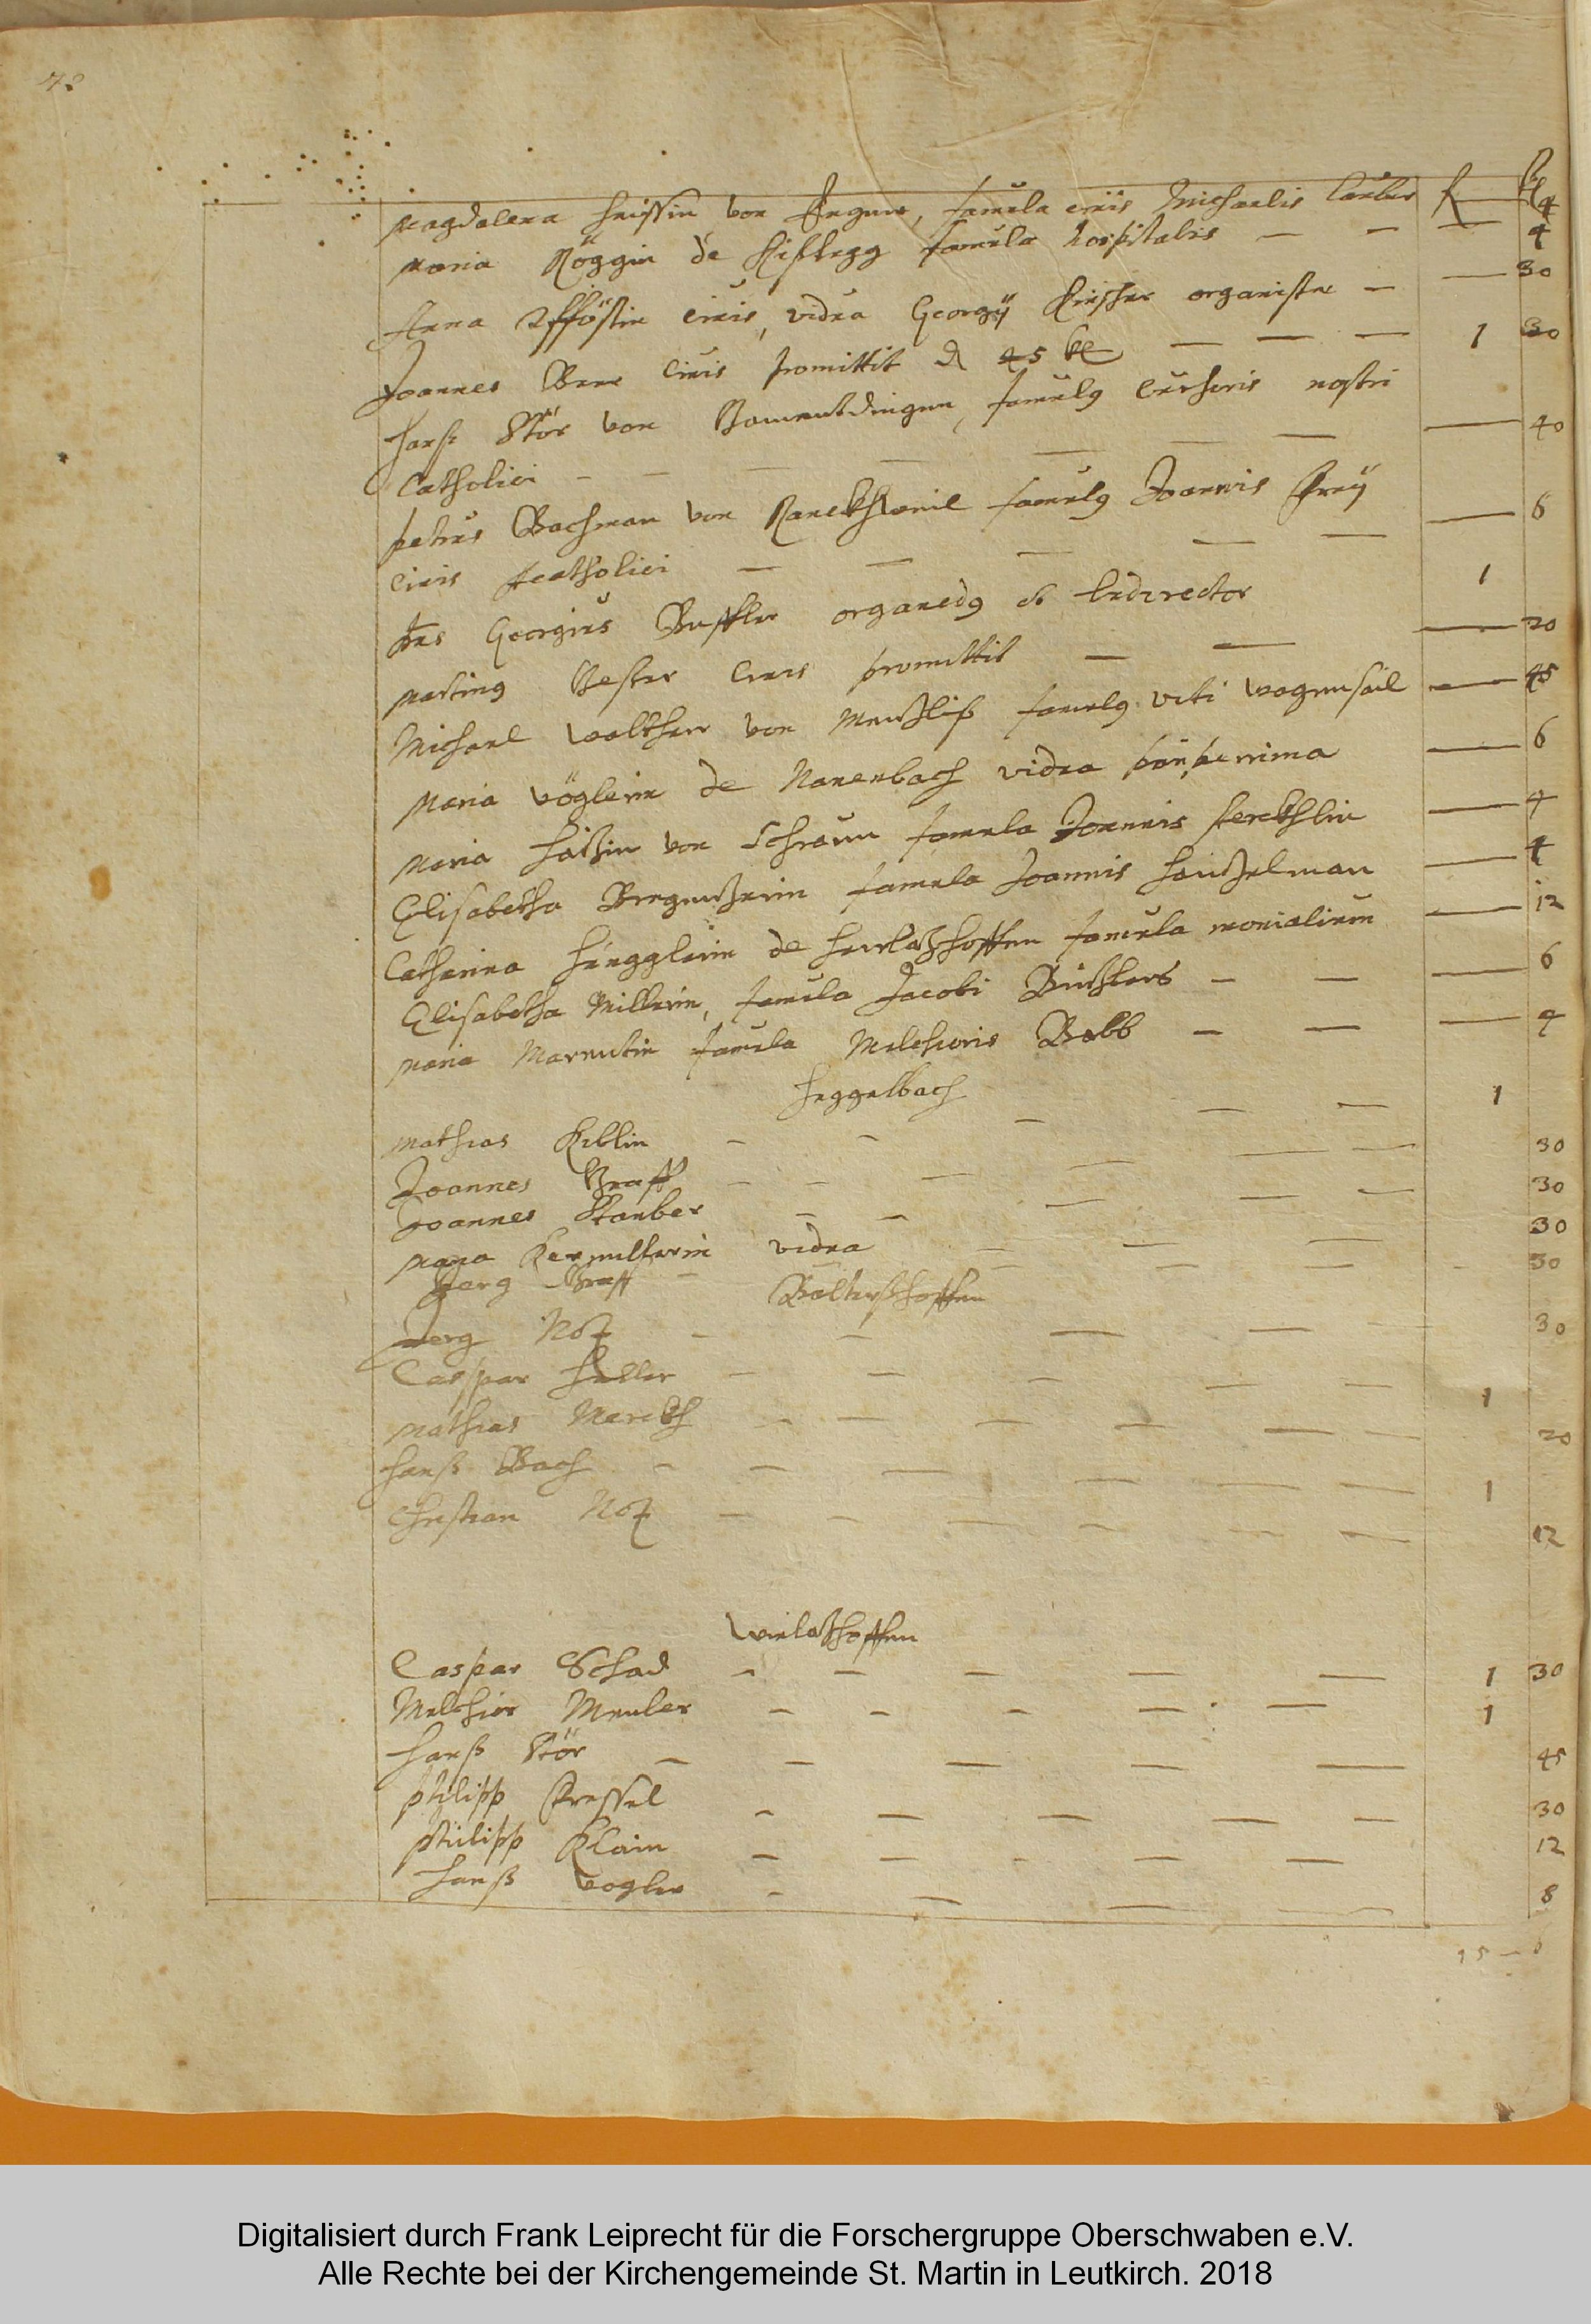 48
fl kr
Magdalena Heüssin von Argum, famula civis Michaelis 4
Maria Röggin de Kißlegg famula hospitalis — — — 4
Anna civis, vidua Georgij Fischer organistae — — 30
Joannes civis promittit d 45 kr — — — 1 30
Hanß Stör von, famulg nostri
Catholici — — — — — — — 40
Petrus Bachman von famulg Joannis Freÿ
civis catholici — — — — — — 6
Georgius organedg et ludirector 1
Marting civis promittit — — — 20
Michael Walther von famulg Viti Wagensail — 45
Maria Vöglerin de Nanenbach vidua pauperrima — 6
Maria von famula Joannis — 4
Elisabetha Bregentzerin famula Joannis — 4
Catharina de Herlatzhoffen famula monialium — 12
Elisabetha Millerin, famula Jacobi — — — 6
Maria famula Melchioris Balb — — — 4
Heggelbach
Mathias Kiblin — — — — — 1
Joannes Graff — — — — — — 30
Joannes Stauber — — — — — 30
Maria vidua — — — 30
Jerg Graff — — — — — 30
Balterßhoffen
Jerg Notz — — — — — 30
Caspar Haller — — — — — 1
Mathias Merckh — — — — — — 20
Hanß Bach — — — — — — 1
Christian Notz — — — — — — 12
Wielatzhoffen
Caspar Schad — — — — — 1 30
Melchior — — — — — 1
Hanß Stör — — — — — 45
Philipp Pressel — — — — — 30
Philipp Klain — — — — — 12
Hanß Vogler — — — — 8
15 —
Digitalisiert durch Frank Leiprecht für die Forschergruppe Oberschwaben e.V.
Alle Rechte bei der Kirchengemeinde St. Martin in Leutkirch. 2018